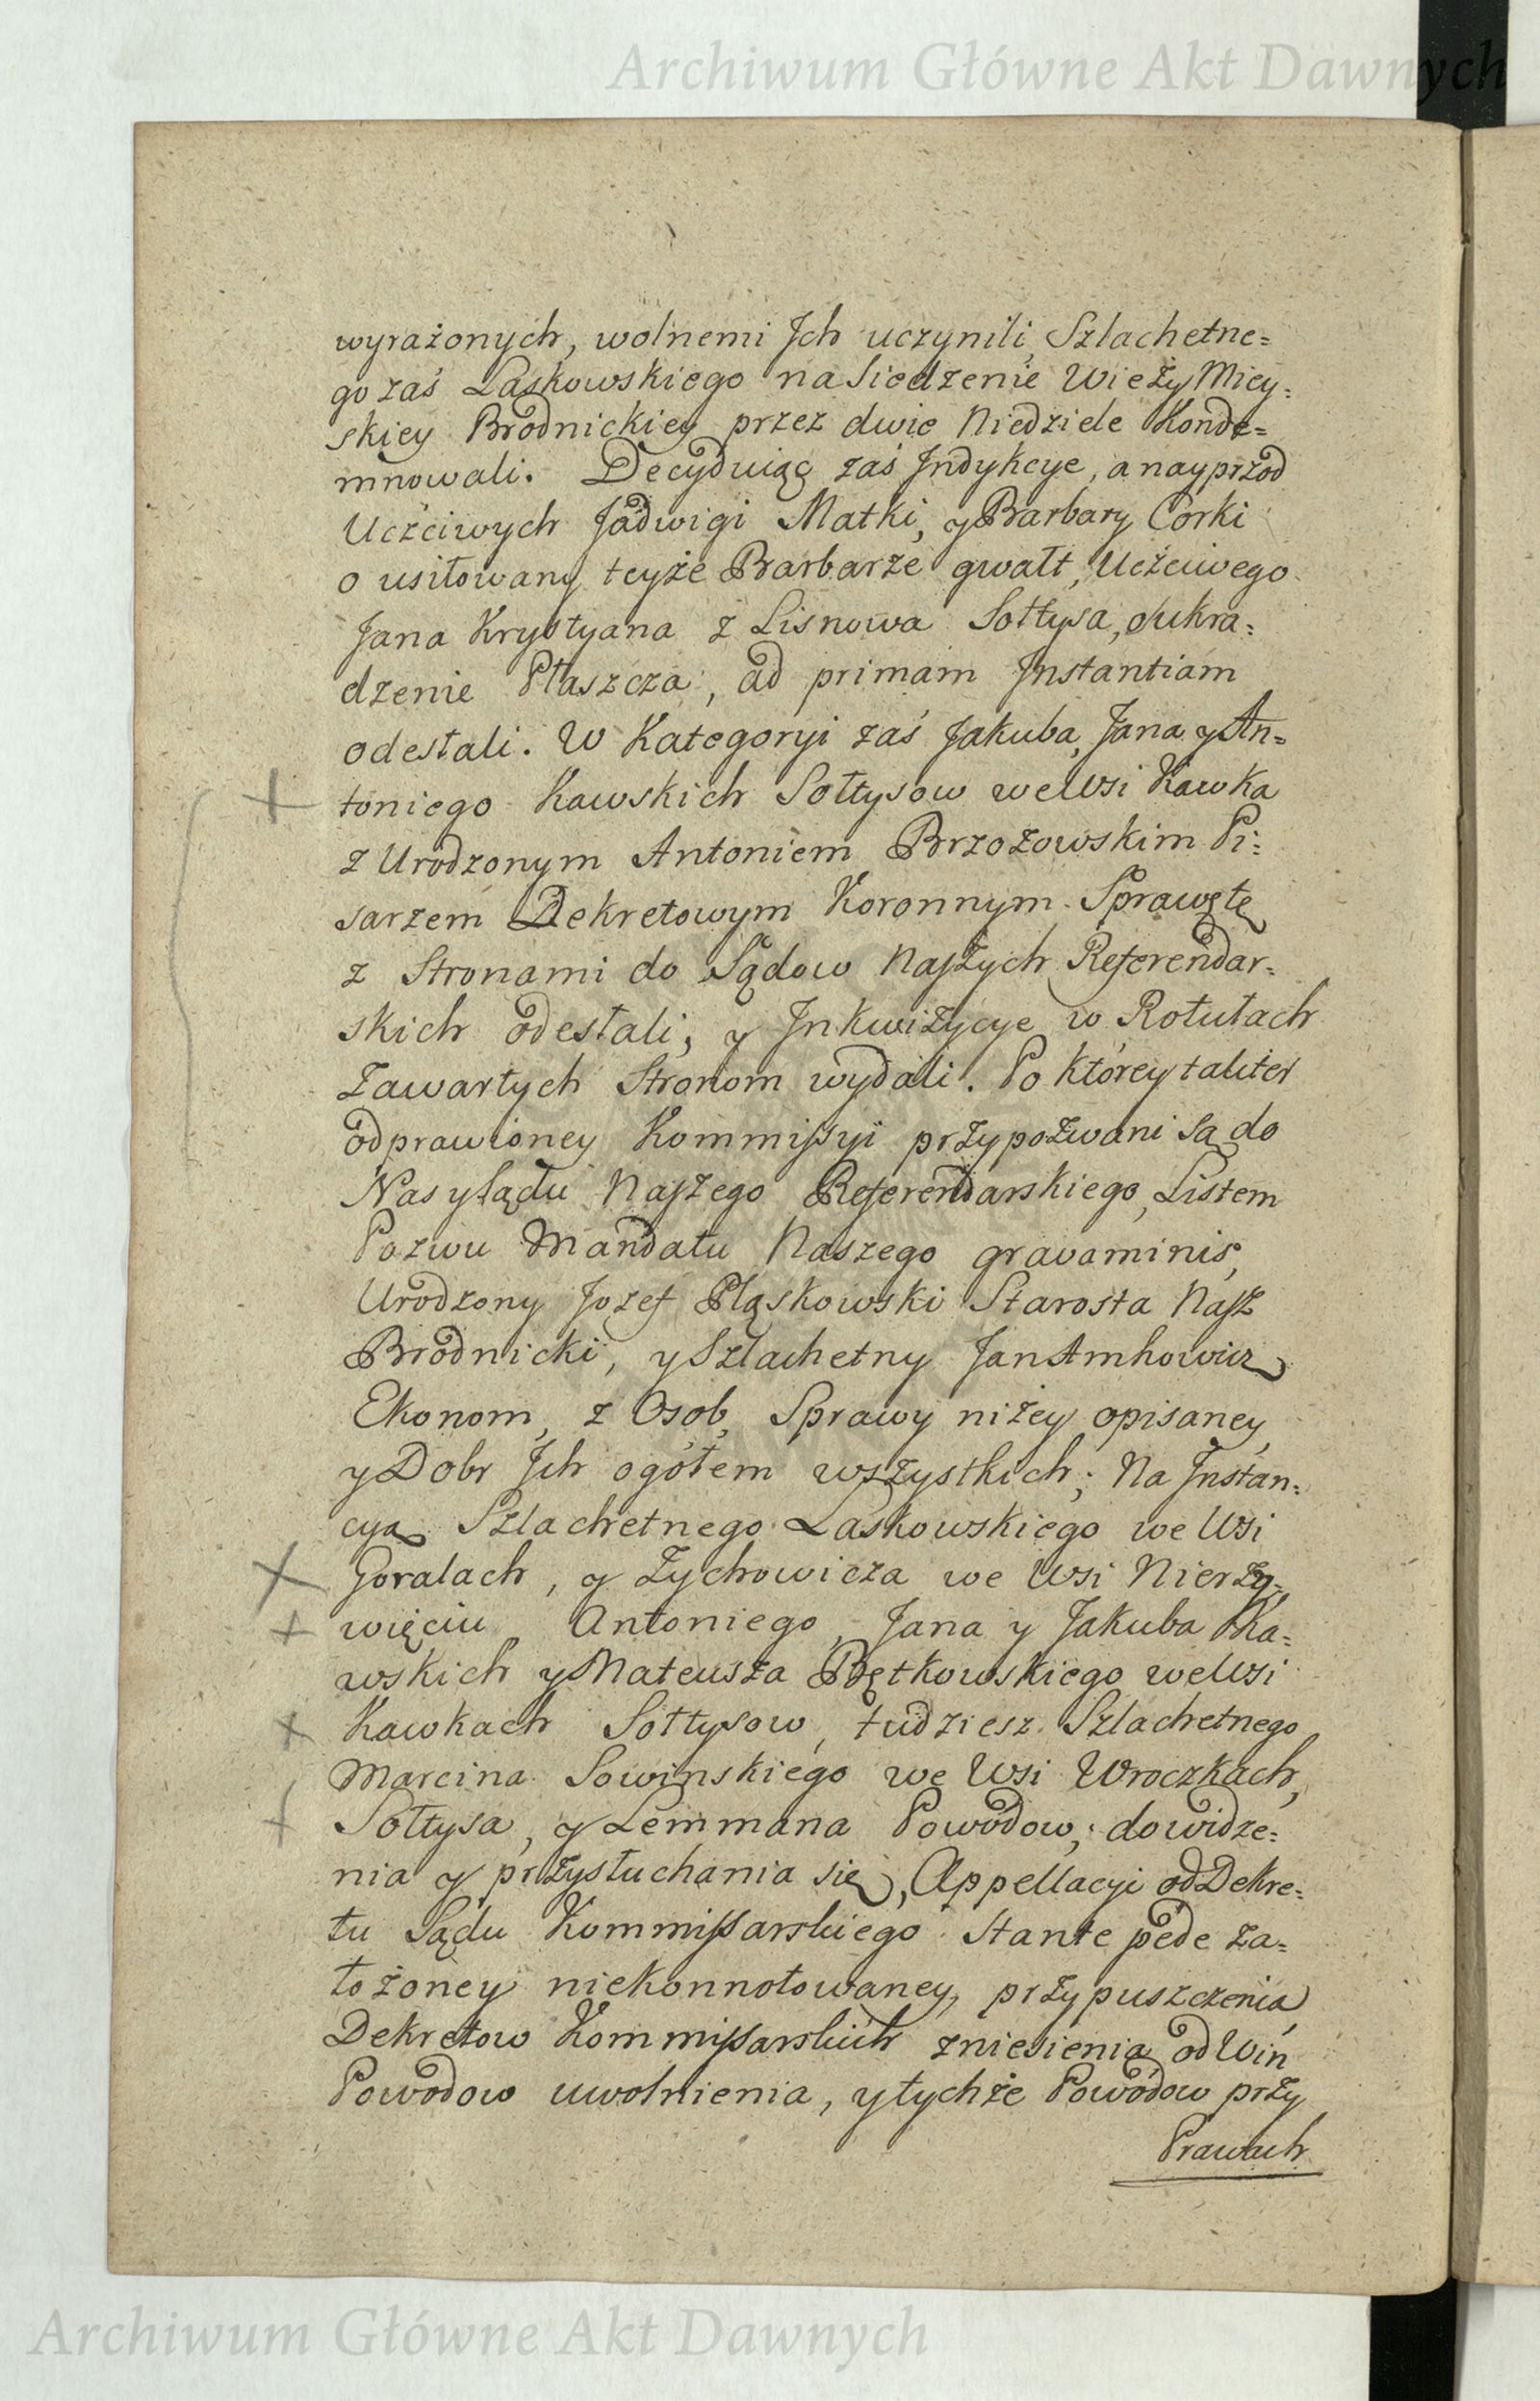 Archiwum Główne Akt Dawnych
wyrażonych, wolnemi Jch uczynili, Szlachetne=
go zaś Laskowskiego na Siedzenie Wieży Miey=
skiey Brodnickiey przez dwie Niedziele Konde=
mnowali. Decyduiąc zaś Jndykcye, a nayprzod
Uczciwych Jadwigi Matki, y Barbary Corki
o usiłowany teyże Barbarze gwałt, Uczciwego
Jana Krystyana z Lisnowa Sołtysa, o ukra=
dzenie Płaszcza, ad primam Jnstantiam
odesłali. W Kategoryi zaś Jakuba, Jana y An=
toniego Kawskich Sołtysow we Wsi Kawka
z Urodzonym Antoniem Brzozowskim Pi=
sarzem Dekretowym Koronnym Sprawę tę
z Stronami do Sądow Naszych Referendar=
skich odesłali, y Jnkwizycye w Rotułach
Zawartych Stronom wydali. Po ktorey taliter
odprawioney Kommissyi przypozwani są do
Nas y Sądu Naszego Referendarskiego, Listem
Pozwu Mandatu Naszego gravaminis,
Urodzony Jozef Pląskowski Starosta Nasz
Brodnicki, y Szlachetny Jan
Ekonom, z Osob, Sprawy niżey opisaney,
y Dobr Jch ogółem wszystkich; Na Jnstan=
cyą Szlachetnego Laskowskiego we Wsi
Goralach, y Zychowicza we Wsi Nierzy=
więciu Antoniego, Jana y Jakuba Ka=
wskich y Mateusza Bętkowskiego we Wsi
Kawkach Sołtysow, tudziesz Szlachetnego
Marcina Sowinskiego we Wsi Wroczkach,
Sołtysa, y Lemmana Powodow; do widze=
nia y przysłuchania się, Appellacyi od Dekre=
tu Sądu Kommissarskiego Stante pede za=
łożoney niekonnotowaney, przypuszczenia,
Dekretow Kommissarskich zniesienia, od Win
Powodow uwolnienia, y tychże Powodow przy
Prawach
Archiwum Główne Akt Dawnych